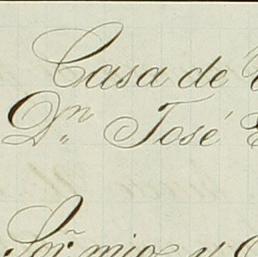 Casa de
Dn José
Sor mio y